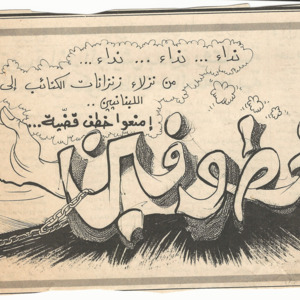 نداء ... نداء ... نداء ...
من نزلاء زنزانات الكتائب إلى
اللبنانيين ..
إمنعوا خطف قضية ...
خطوفين